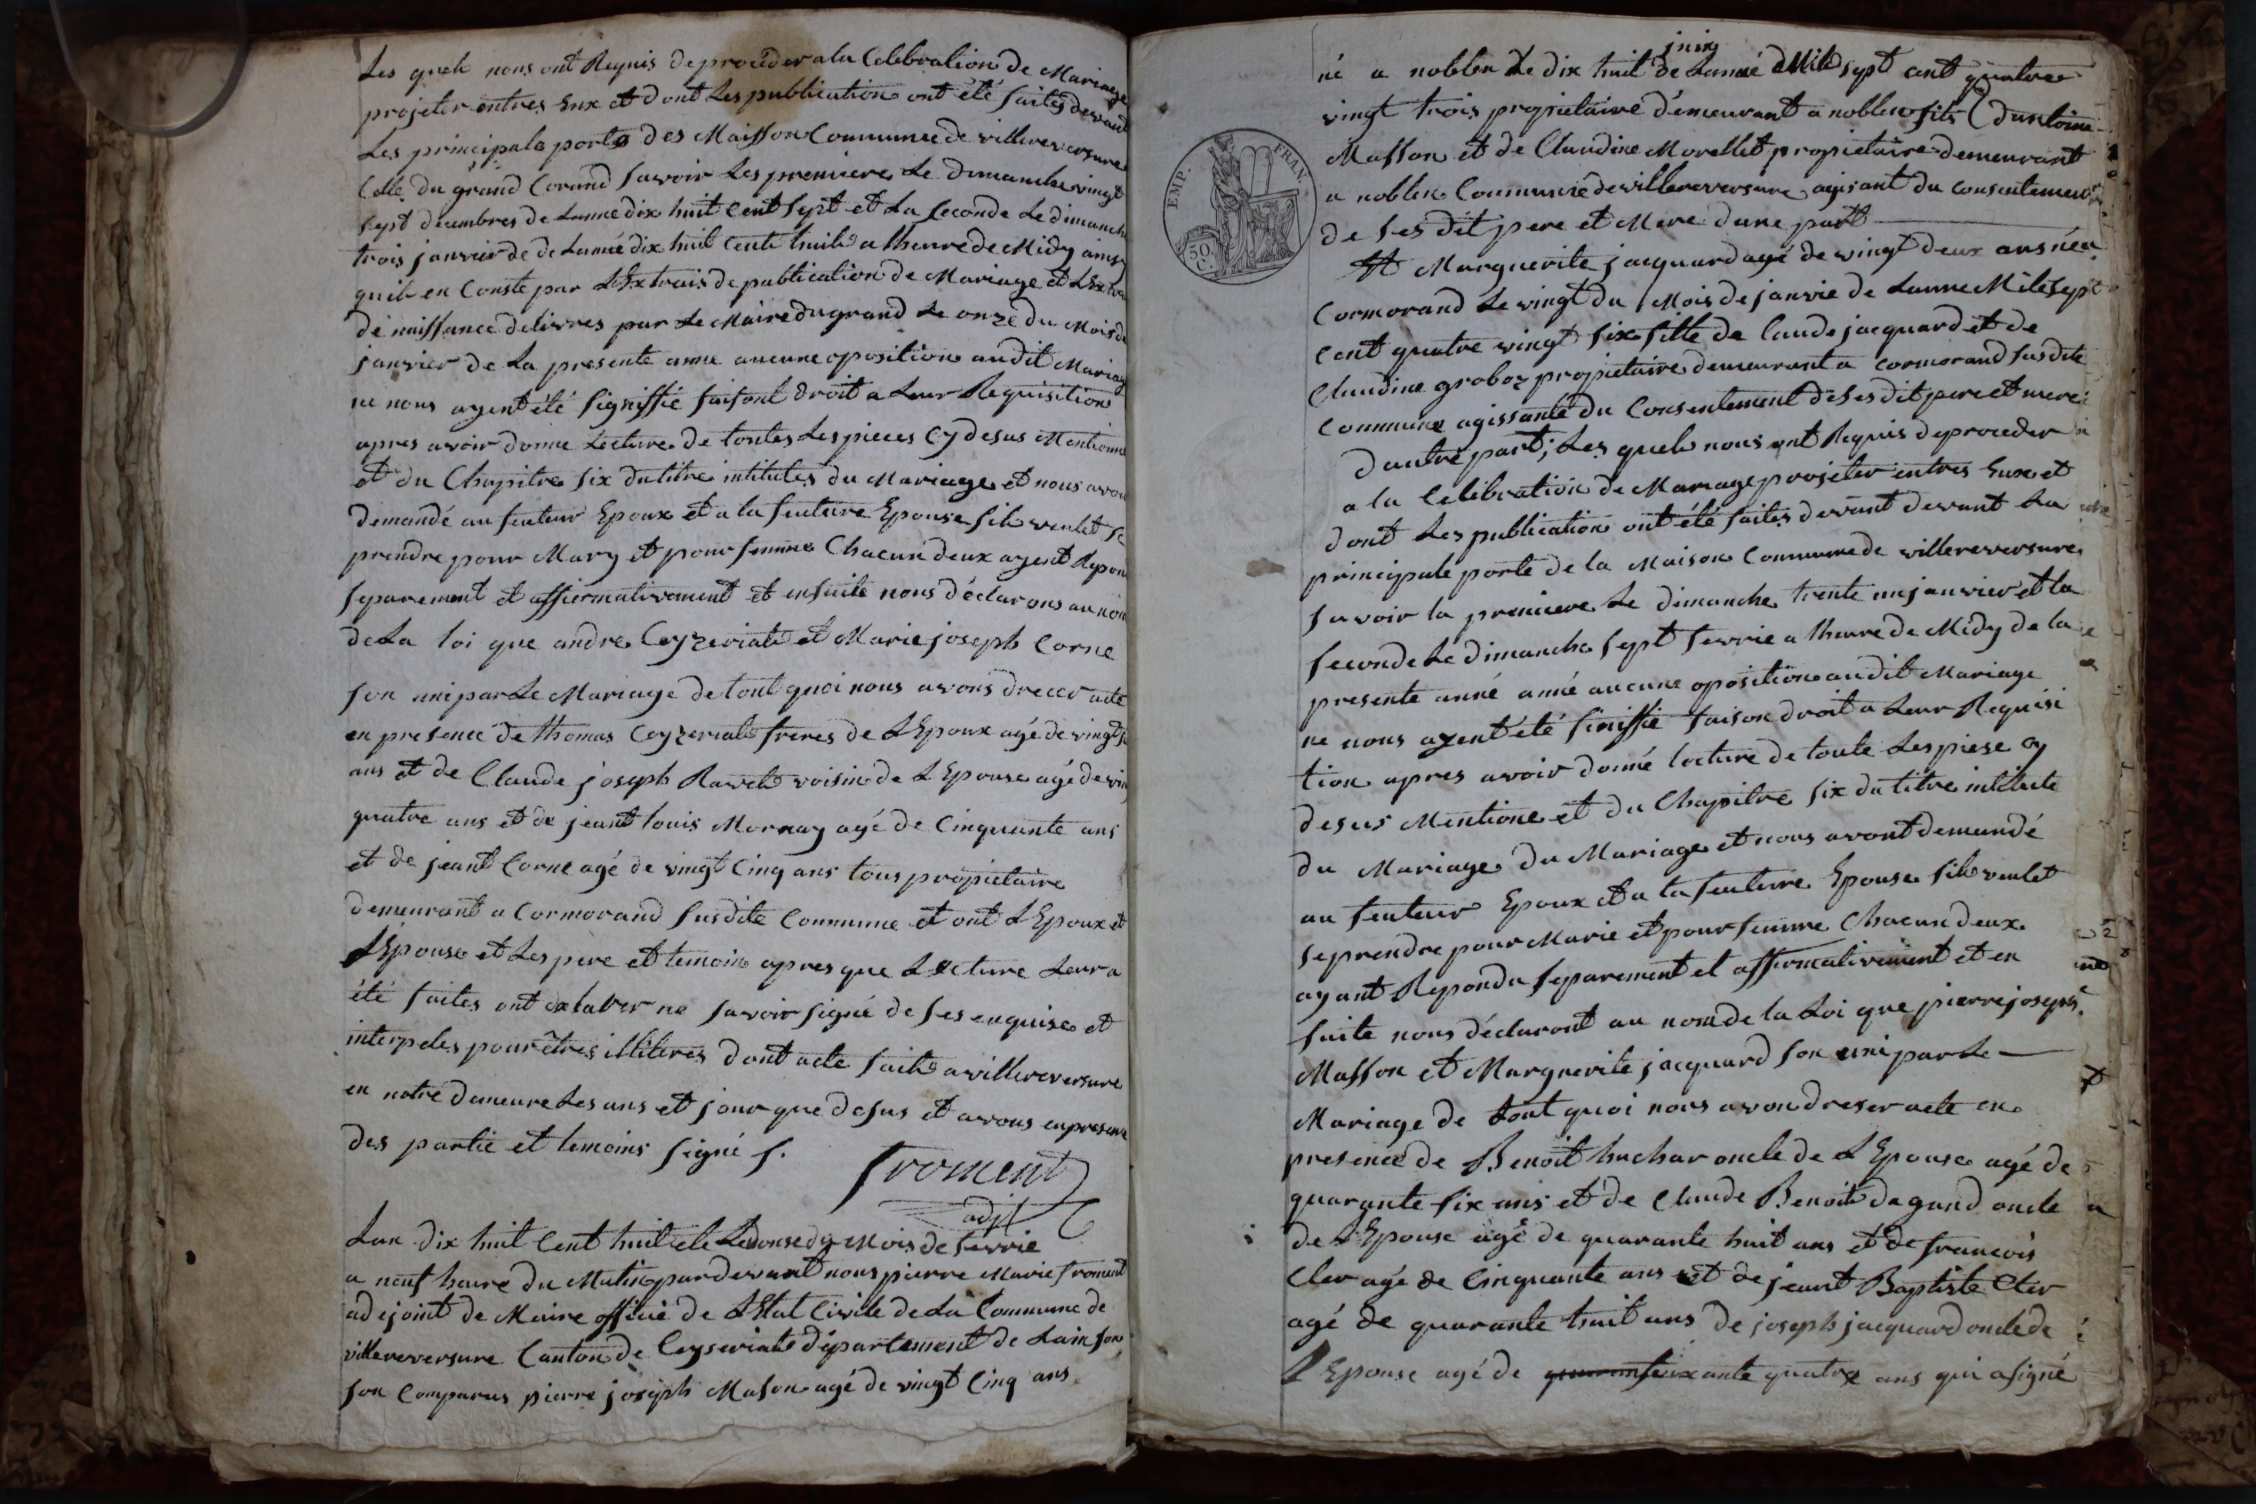 Les quels nous ont Requis de proceder a la Celebration de Mariage
projeter entres Eux et dont Les publication ont été faites devant
Les principale porte des Maisson Commune de villereversure
Celle du grand Corand savoir Les premiere Le Dimanche vingt
sept decembres de Lanné dix huit Cent sept et La seconde Le dimanche
trois janvier de de Lanné dix huit Cents huit a lheure de Midy ainsy
quil en Conste par LExtrais de publication de Mariage et LExtrai
de naissance delivres par Le Maire du grand Le onze du Mois de
janvier de La presente anne aucune oposition audit Mariage
ne nous ayent été signiffié faisont droit a Leur Requisition
apres avoir donne Lecture de toutes Les pieces Cy desus Mentionne
et du Chapitre six du titre intitules du Mariage et nous avon
demandé au feuteur Epoux et a la feuteure Epouse sils veulet se
prendre pour Mary et pour femme Chacun deux ayent Repon
separement et affiermativement et ensuite nous déclarons au nom
de La loi que andre Ceyzeriat et Marie joseph Corne
son uni par Le Mariage de tout quoi nous avons dreccer acte
en presence de thomas Ceyzeriat freres de LEpoux agé de vingt
ans et de Claude joseph Ravet voisin de LEpouse agé de vin
quatre ans et de jeant louis Mornay agé de Cinquante ans
et de jeant Corne agé de vingt Cinq ans tous propietaire
demeurant a Cormorand susdite Commune et ont LEpoux et
LEpouse et Les pere et temoin apres que Lecture Leur a
été faites ont declarer ne savoir signé de ses enquise et
interpeles pour êtres illiteres dont acte fait a villereversure
en notre demeure Les ans et jour que desus et avons en presence
des partie et temoins signé f.
froment
adjt
Lan dix huit Cent huit et Le douse du Mois de fevrie
a neuf heure du Matin pardevant nous pierre Marie froment
adejoint de Maire officié de LEtat Civile de La Commune de
villereversure Canton de Ceyseriat département de Lain son
son Comparus pierre joseph Mason agé de vingt Cinq ans
EMP. FRAN.
50 C.
juin
né a noblen Le dix huit de Lanné Mile sept cent quatre
vingt trois propietaire demeurant a noblen fils dantoine
Masson et de Claudine Morellet propietaire demeurant
a noblen Commune de villereversure agisant du consentement
de ses dit pere et Mere dune part
Et Marguerite jacquard agé de vingt deux ans née a
Cormorand Le vingt du Mois de janvie de Lanne Mile sept
cent quatre vingt six fille de Claude jacquard et de
Claudine groboz propietaire demeurant a cormorand susdite
Commune agissante du Consentement de ses dit pere et mere
dautre part; Les quels nous ont Requis de proceder
a la Celebration de Mariage projeter entres Eux et
dont Les publication ont été faites devant devant La
principale porte de la Maison Commune de villereversure
savoir la premiere Le dimanche trente un janvier et la
seconde Le dimanche sept fevrie a lheure de Midy de la
presente anné anné aucune oposition audit Mariage
ne nous ayent été siniffié faison droit a Leur Requisi
tion apres avoir donné lecture de toute Les piese cy
desus Mentione et du Chapitre six du titre intitule
du Mariage du Mariage et nous avont demandé
au feuteur Epoux et a la feuteure Epouse sils veulet
se prendre pour Marie et pour femme Chacun deux
ayant Repondu separement et affirmativement et en
suite nous déclaront au nom de la Loi que pierre joseph
Masson et Marguerite jacquard son uni par Le
Mariage de tout quoi nous avon dreser acte en
presence de Benoit huchar oncle de LEpouse agé de
quarante six ans et de Claude Benoit dagand oncle
de LEpouse agé de quarante huit ans et de francois
Cler agé de Cinquante ans et de jeant Baptiste Cler
agé de quarante huit ans de joseph jacquard oncle de
LEpouse agé de soixante quatre ans qui a signé